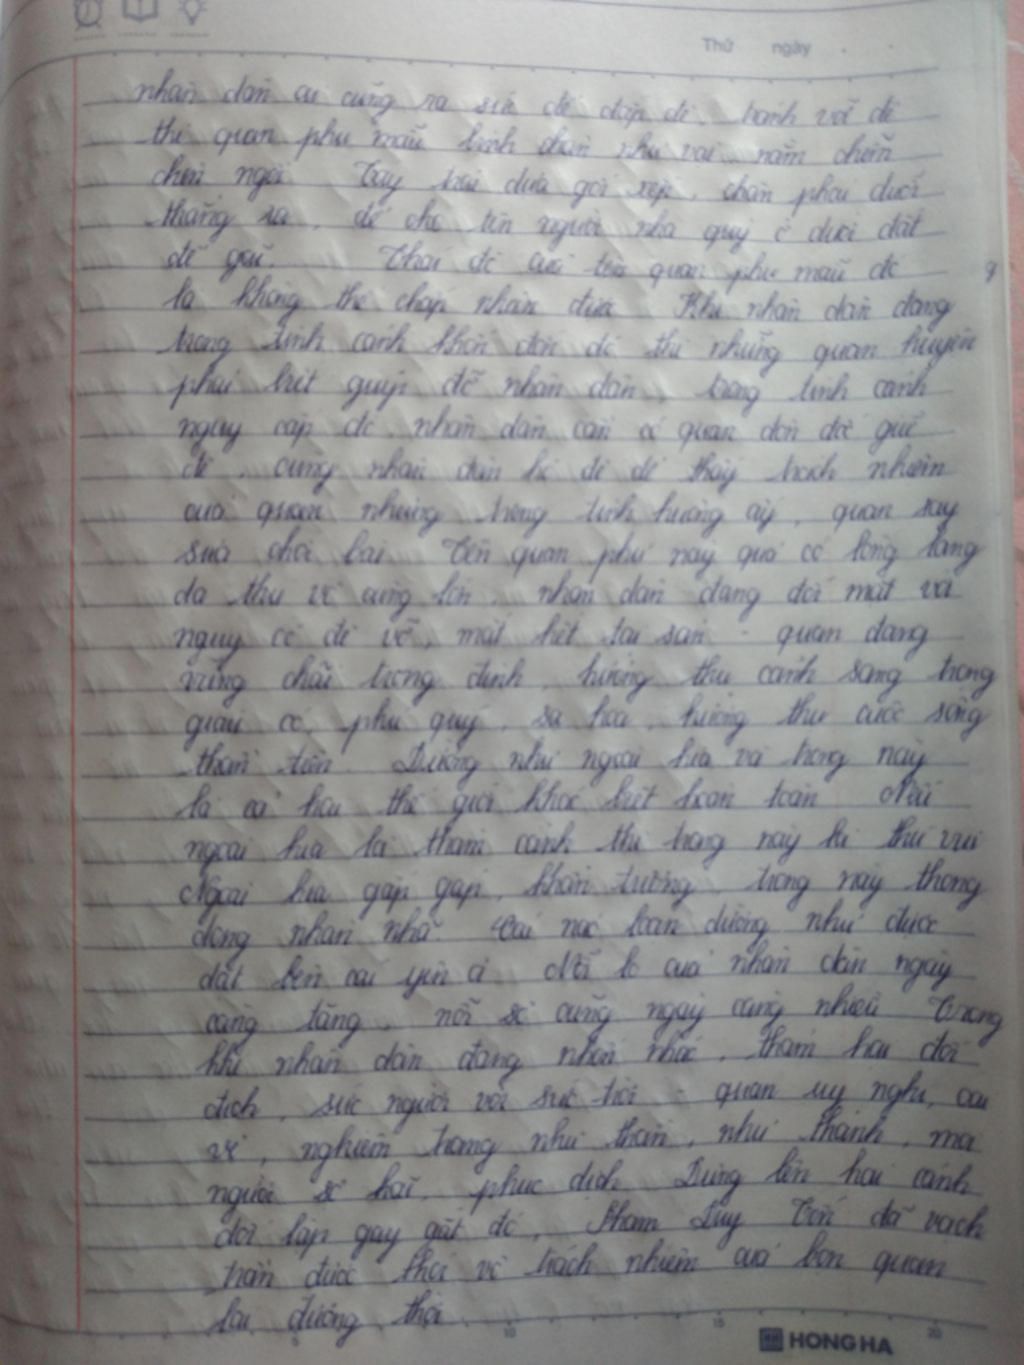 Thứ ngày
nhân dân cứ cũng ra sức để đắp đê, tránh vỡ đê
thì quan phụ mẫu bình chân như vại, nằm chễm
chệ ngồi. Tay trái dựa gối xếp, chân phải duỗi
thẳng ra, để cho tên người nhà quỳ ở dưới đất
để gãi. Thái độ của tên quan phụ mẫu đó
là không thể chấp nhận được. Khi nhân dân đang
trong tình cảnh khốn đốn đó thì những quan huyện
phải biết giúp đỡ nhân dân, trong tình cảnh
nguy cấp đó, nhân dân cần có quan đôn đốc
đê, cùng nhân dân hộ đê để thấy trách nhiệm
của quan nhưng trong tình huống ấy, quan say
sưa chơi bài. Tên quan phủ này quả có lòng lang
dạ thú vô cùng lớn, nhân dân đang đối mặt với
nguy cơ đê vỡ, mất hết tài sản - quan đang
vững chãi trong đình, hưởng thụ cảnh sang trọng
giàu có, phú quý, xa hoa, hưởng thụ cuộc sống
thần tiên. Dường như ngoài kia và trong này
là cả hai thế giới khác biệt hoàn toàn. Nếu
ngoài kia là thảm cảnh thì trong này là thú vui
Ngoài kia gấp gáp, khẩn trương, trong này thong
dong nhàn nhã. Cái náo loạn dường như được
đặt bên cái yên ả. Nỗi lo của nhân dân ngày
càng tăng, nỗi sợ cũng ngày càng nhiều. Trong
khi nhân dân đang nhốn nháo, thảm hại đối
địch, sức người với sức trời - quan uy nghi, oai
vệ, nghiêm trang như thần, như thánh, mọi
người sợ hãi, phục dịch. Dựng lên hai cảnh
đối lập gay gắt đó, Phạm Duy Tốn đã vạch
trần được thói vô trách nhiệm của bọn quan
lại đương thời
5 10 15 20
HONG HA